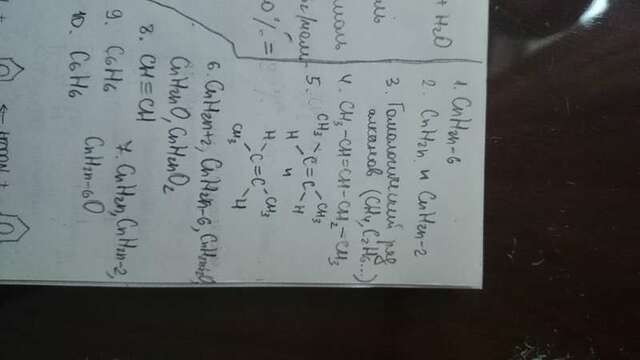 1. CnH2n-6
2. CnH2n и CnH2n-2
3. Гомологический ряд
алканов (CH4, C2H6...)
4. CH3-CH=CH-CH2-CH3
5.
CH3 CH3
C=C
H H
и
H CH3
C=C
CH3 H
6. CnH2n+2, CnH2n-6,
CnH2nO, CnH2nO2
7. CnH2n, CnH2n-2,
CnH2n-6O
8. CH≡CH
9. C6H6
10. C6H6
+ H2O
0%=